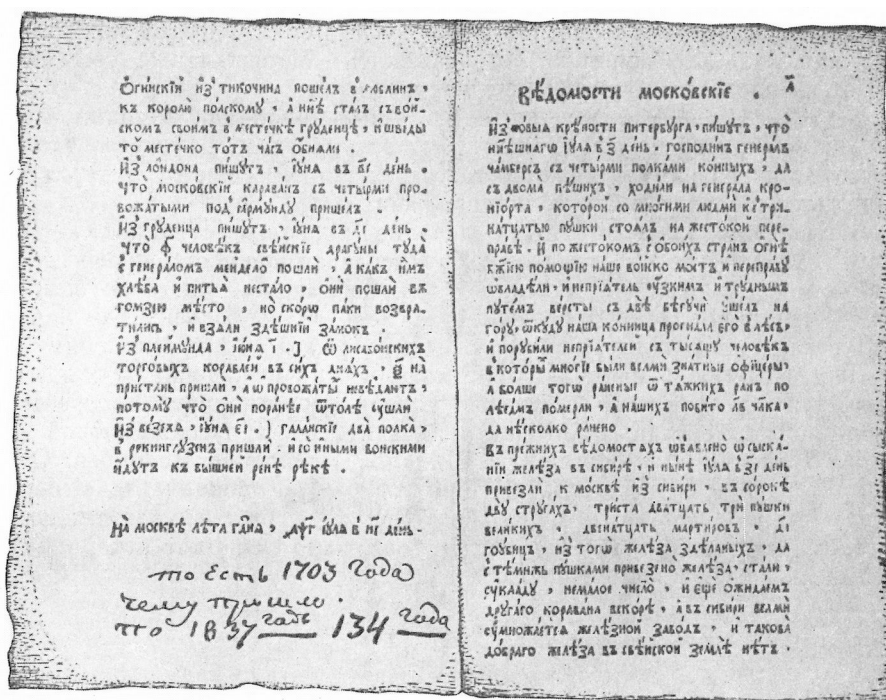 Огинскїй из тикочина пошелъ в люблин,
къ королю полскому, а ннѣ сталъ съ вой-
скомъ своимъ в местечкѣ груденцѣ, и шведы
то местечко тотъ часъ обняли.
Из лондона пишутъ, їуня въ день.
что московскїй караванъ съ четырми про-
вожатыми под ярмунду пришелъ.
Из груденца пишутъ, їуня въ день.
что ф҃ человѣкъ свѣйскїе драгуны туда
с генераломъ мейделѡ пошли, а какъ имъ
хлѣба и питья нестало, они пошли въ
мѣсто, но скорѡ паки возвра-
тились, и взяли здѣшнїй замокъ.
Из плеймунда, їюня ı҃. ] ѿ лисабонскихъ
торговыхъ кораблей въ сихъ дняхъ, на
пристань пришли, а ѡ провожатыхъ невѣдаютъ,
потому что они поранѣе ѿтолѣ
Из везеля, їуня е҃ı. ) галанскїе два полка,
в пришли. и со иными воискими
идутъ къ вышней ренѣ рѣкѣ.
На москвѣ лѣта гдня, ҂аѱг їуля в день.
то Есть 1703 года
чему прошло.
по 1837 годъ 134 года
Вѣдомости московскїе. а҃
Из новыя крѣпости питербурга, пишутъ, что
ннѣшнягѡ їуля в з҃ день. господинъ генералъ
чамберсъ съ четырми полками конныхъ, да
съ двѡма пѣшихъ, ходилъ на генерала кро-
нїорта, которой со многими людми и с три-
натцатью пушки стоялъ на жестокой пере-
правѣ. И по жестокомъ с обоихъ странъ огнѣ
бжїею помощїю наше воиско мостъ и переправу
ѡвладѣли, и непрїятель ѹзкимъ и труднымъ
путемъ версты съ двѣ бѣгучи ѹшелъ на
гору, ѿкуду наша конница прогнала его в лѣсъ,
и порубили непрїятелей съ тысящу человѣкъ
в которыхъ многїе были велми знатные офицеры,
а болше тогѡ раненые ѿ тяжкихъ ранъ по
лѣсамъ померли, а нашихъ побито лв҃ члка,
да нѣсколко ранено.
Въ прежнихъ вѣдомостяхъ ѡбявлено ѡ сыска-
нїи желѣза въ сибирѣ, и нынѣ їуля в з҃ı день
привезли к москвѣ из сибири, въ сорокѣ
дву стругахъ, триста дватцать три пушки
великихъ, двенатцать мартировъ, д҃ı
гоубицъ, из тогѡ желѣза здѣланыхъ, да
с тѣмижъ пушками привезено желѣза, стали,
ѹкладу, немалое число, и еще ожидаемъ
другаго каравана вскорѣ, а въ сибири велми
ѹмножается желѣзной заводъ, и такова
добраго желѣза въ свѣйской землѣ нѣтъ.